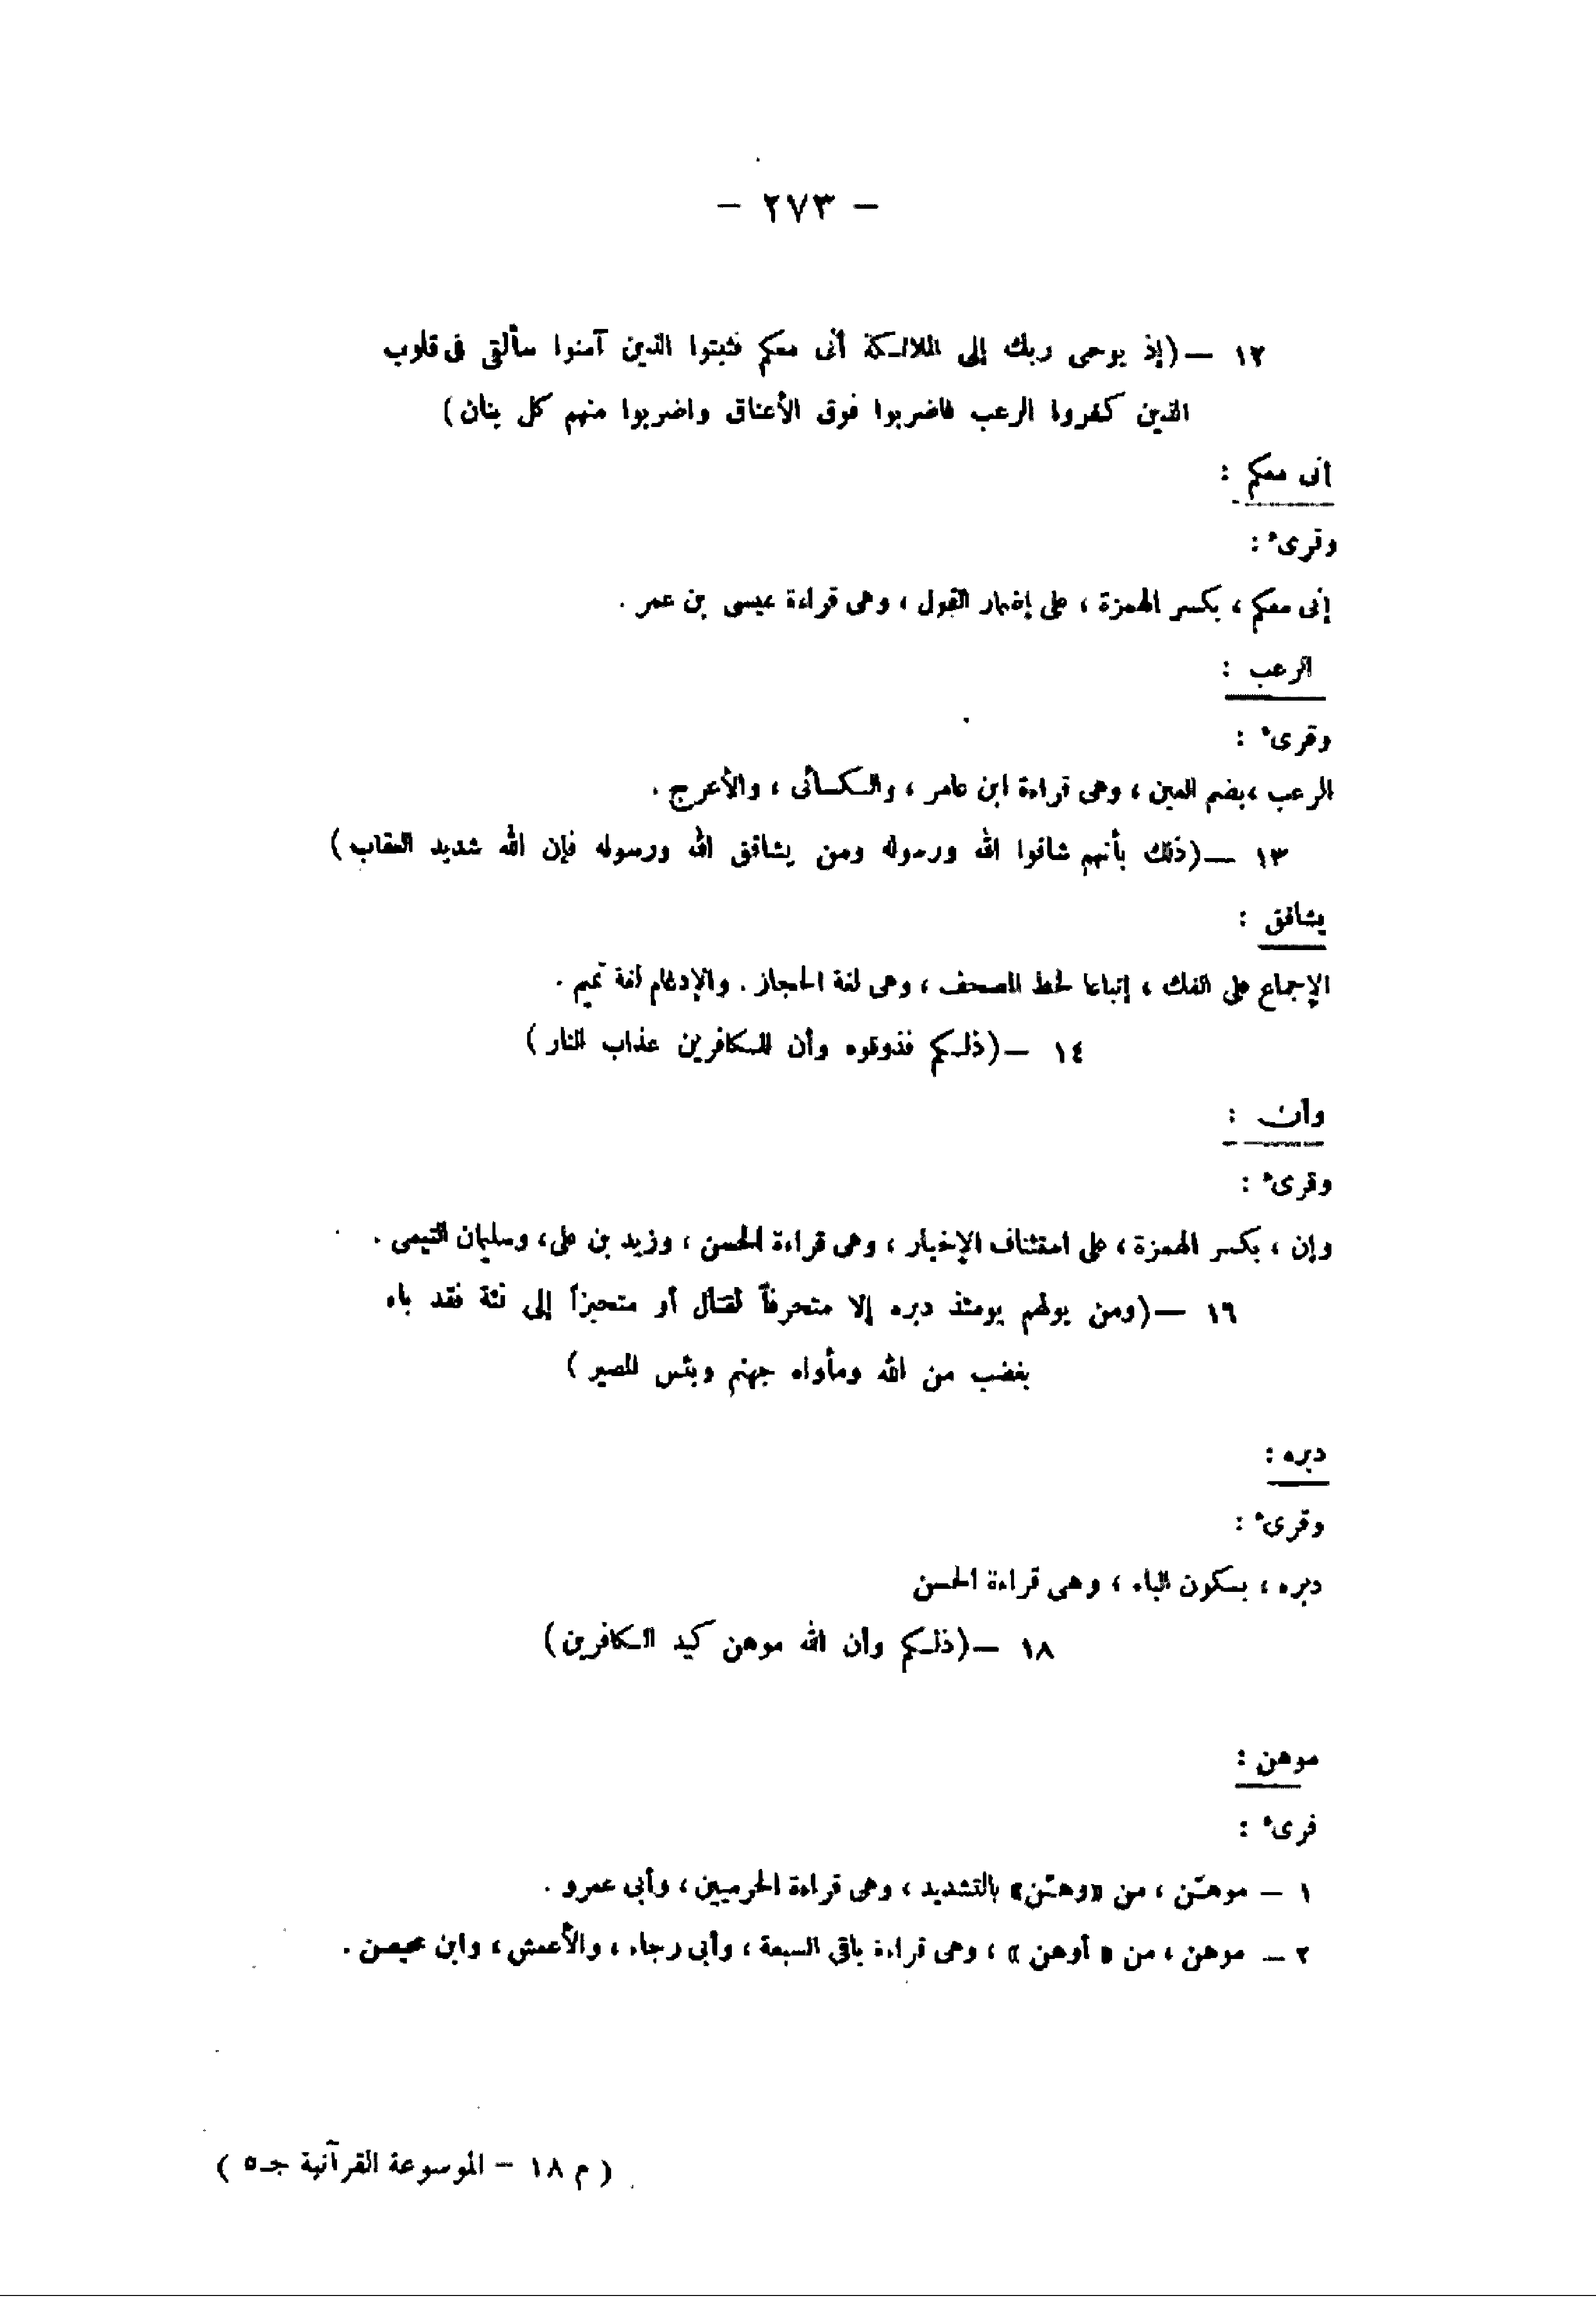 – ٢٧٣ –
١٢ – (إذ يوحى ربك إلى الملائكة أنى معكم فثبتوا الذين آمنوا سألقى فى قلوب
الذين كفروا الرعب فاضربوا فوق الأعناق واضربوا منهم كل بنان)
أنى معكم :
وقرىء :
إنى معكم ، بكسر الهمزة ، على إضمار القول ، وهى قراءة عيسى بن عمر .
الرعب :
وقرىء :
الرعب ، بضم العين ، وهى قراءة ابن عامر ، والكسائى ، والأعرج .
١٣ – (ذلك بأنهم شاقوا الله ورسوله ومن يشاقق الله ورسوله فإن الله شديد العقاب)
يشاقق :
الإجماع على الفك ، إتباعا لخط المصحف ، وهى لغة الحجاز . والإدغام لغة تميم .
١٤ – (ذلكم فذوقوه وأن للكافرين عذاب النار)
وأن :
وقرىء :
وإن ، بكسر الهمزة ، على استئناف الإخبار ، وهى قراءة الحسن ، وزيد بن على ، وسليمان التيمى .
١٦ – (ومن يولهم يومئذ دبره إلا متحرفاً لقتال أو متحيزاً إلى فئة فقد باء
بغضب من الله ومأواه جهنم وبئس المصير )
دبره :
وقرىء :
دبره ، بسكون الباء ، وهى قراءة الحسن
١٨ – (ذلكم وأن الله موهن كيد الكافرين)
موهن :
قرىء :
١ – موهّن ، من «وهّن» بالتشديد ، وهى قراءة الحرميين ، وأبى عمرو .
٢ – موهن ، من « أوهن » ، وهى قراءة باقى السبعة ، وأبى رجاء ، والأعمش ، وابن محيصن .
( م ١٨ – الموسوعة القرآنية جـ ٥ )